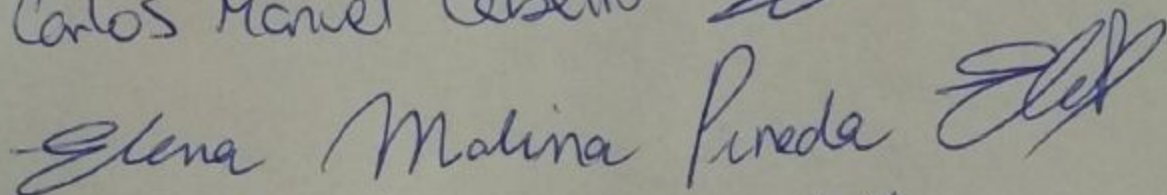 Carlos Manuel
Elena Molina Pineda